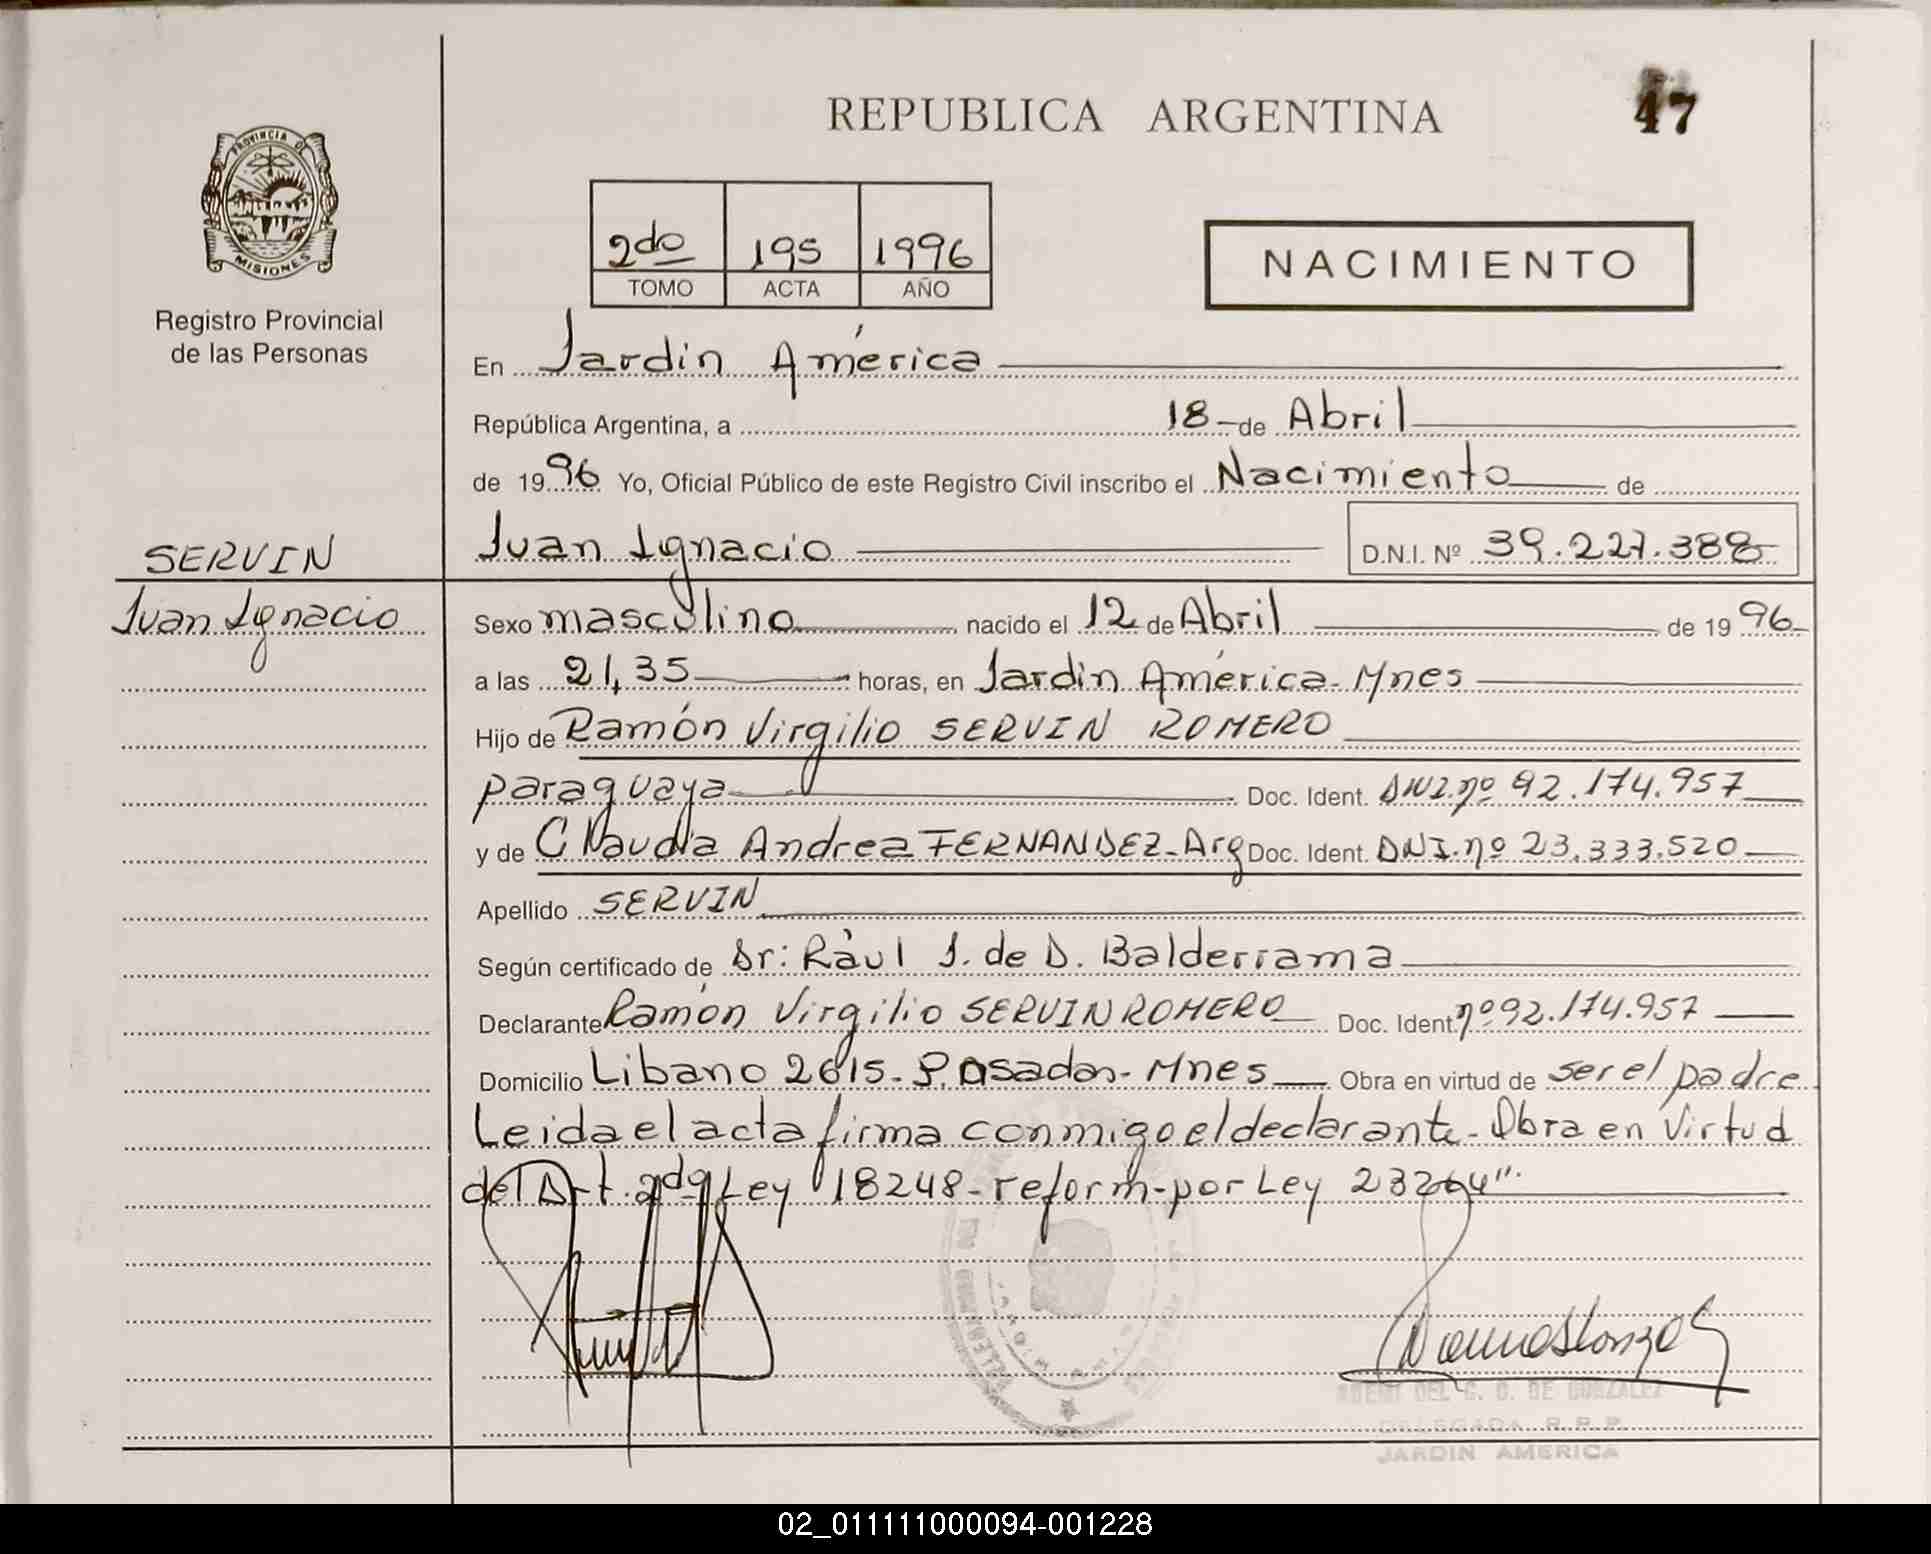 REPUBLICA ARGENTINA
47
PROVINCIA DE
MISIONES
Registro Provincial
de las Personas
2do 195 1996
TOMO ACTA AÑO
NACIMIENTO
En Jardín América
República Argentina, a 18 de Abril
de 1996 Yo, Oficial Público de este Registro Civil inscribo el Nacimiento de
Juan Ignacio D.N.I. Nº 39.227.388
SERVIN
Juan Ignacio
Sexo masculino nacido el 12 de Abril de 1996
a las 21,35 horas, en Jardín América - Mnes
Hijo de Ramón Virgilio SERVIN ROMERO
paraguaya Doc. Ident. DNI.nº 92.174.957
y de Claudia Andrea FERNANDEZ - Arg Doc. Ident. DNI.nº 23.333.520
Apellido SERVIN
Según certificado de Dr: Ràul J. de D. Balderrama
Declarante Ramón Virgilio SERVIN ROMERO Doc. Ident. nº 92.174.957
Domicilio Libano 2615 - Posadas - Mnes Obra en virtud de ser el padre
Leida el acta firma conmigo el declarante - Obra en Virtud
del Art. 2do Ley 18248 - reform - por Ley 23264".
DEL C. D. DE GONZALEZ
DELEGADA R.R.P.
JARDIN AMERICA
02_011111000094-001228